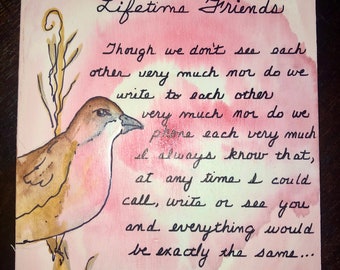 Lifetime Friends
Though we don't see each
other very much nor do we
write to each other
very much nor do we
phone each very much
I always know that,
at any time I could
call, write or see you
and everything would
be exactly the same...